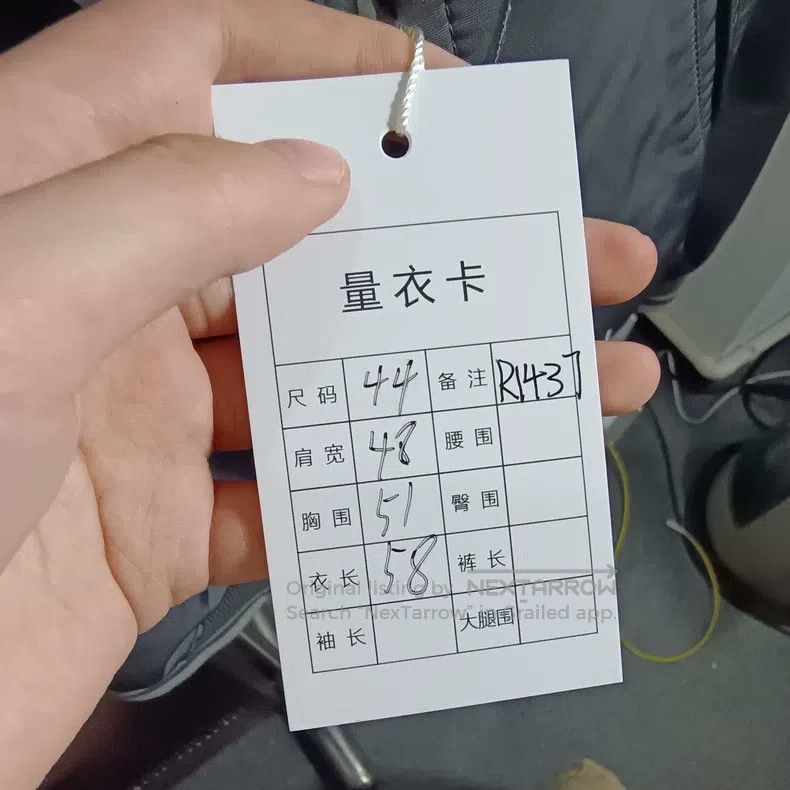 量衣卡
尺码 44 备注 R1437
肩宽 48 腰围
胸围 51 臀围
衣长 58 裤长
Original listing by NEXTARROW
Search "NexTarrow" in Grailed app.
袖长 大腿围